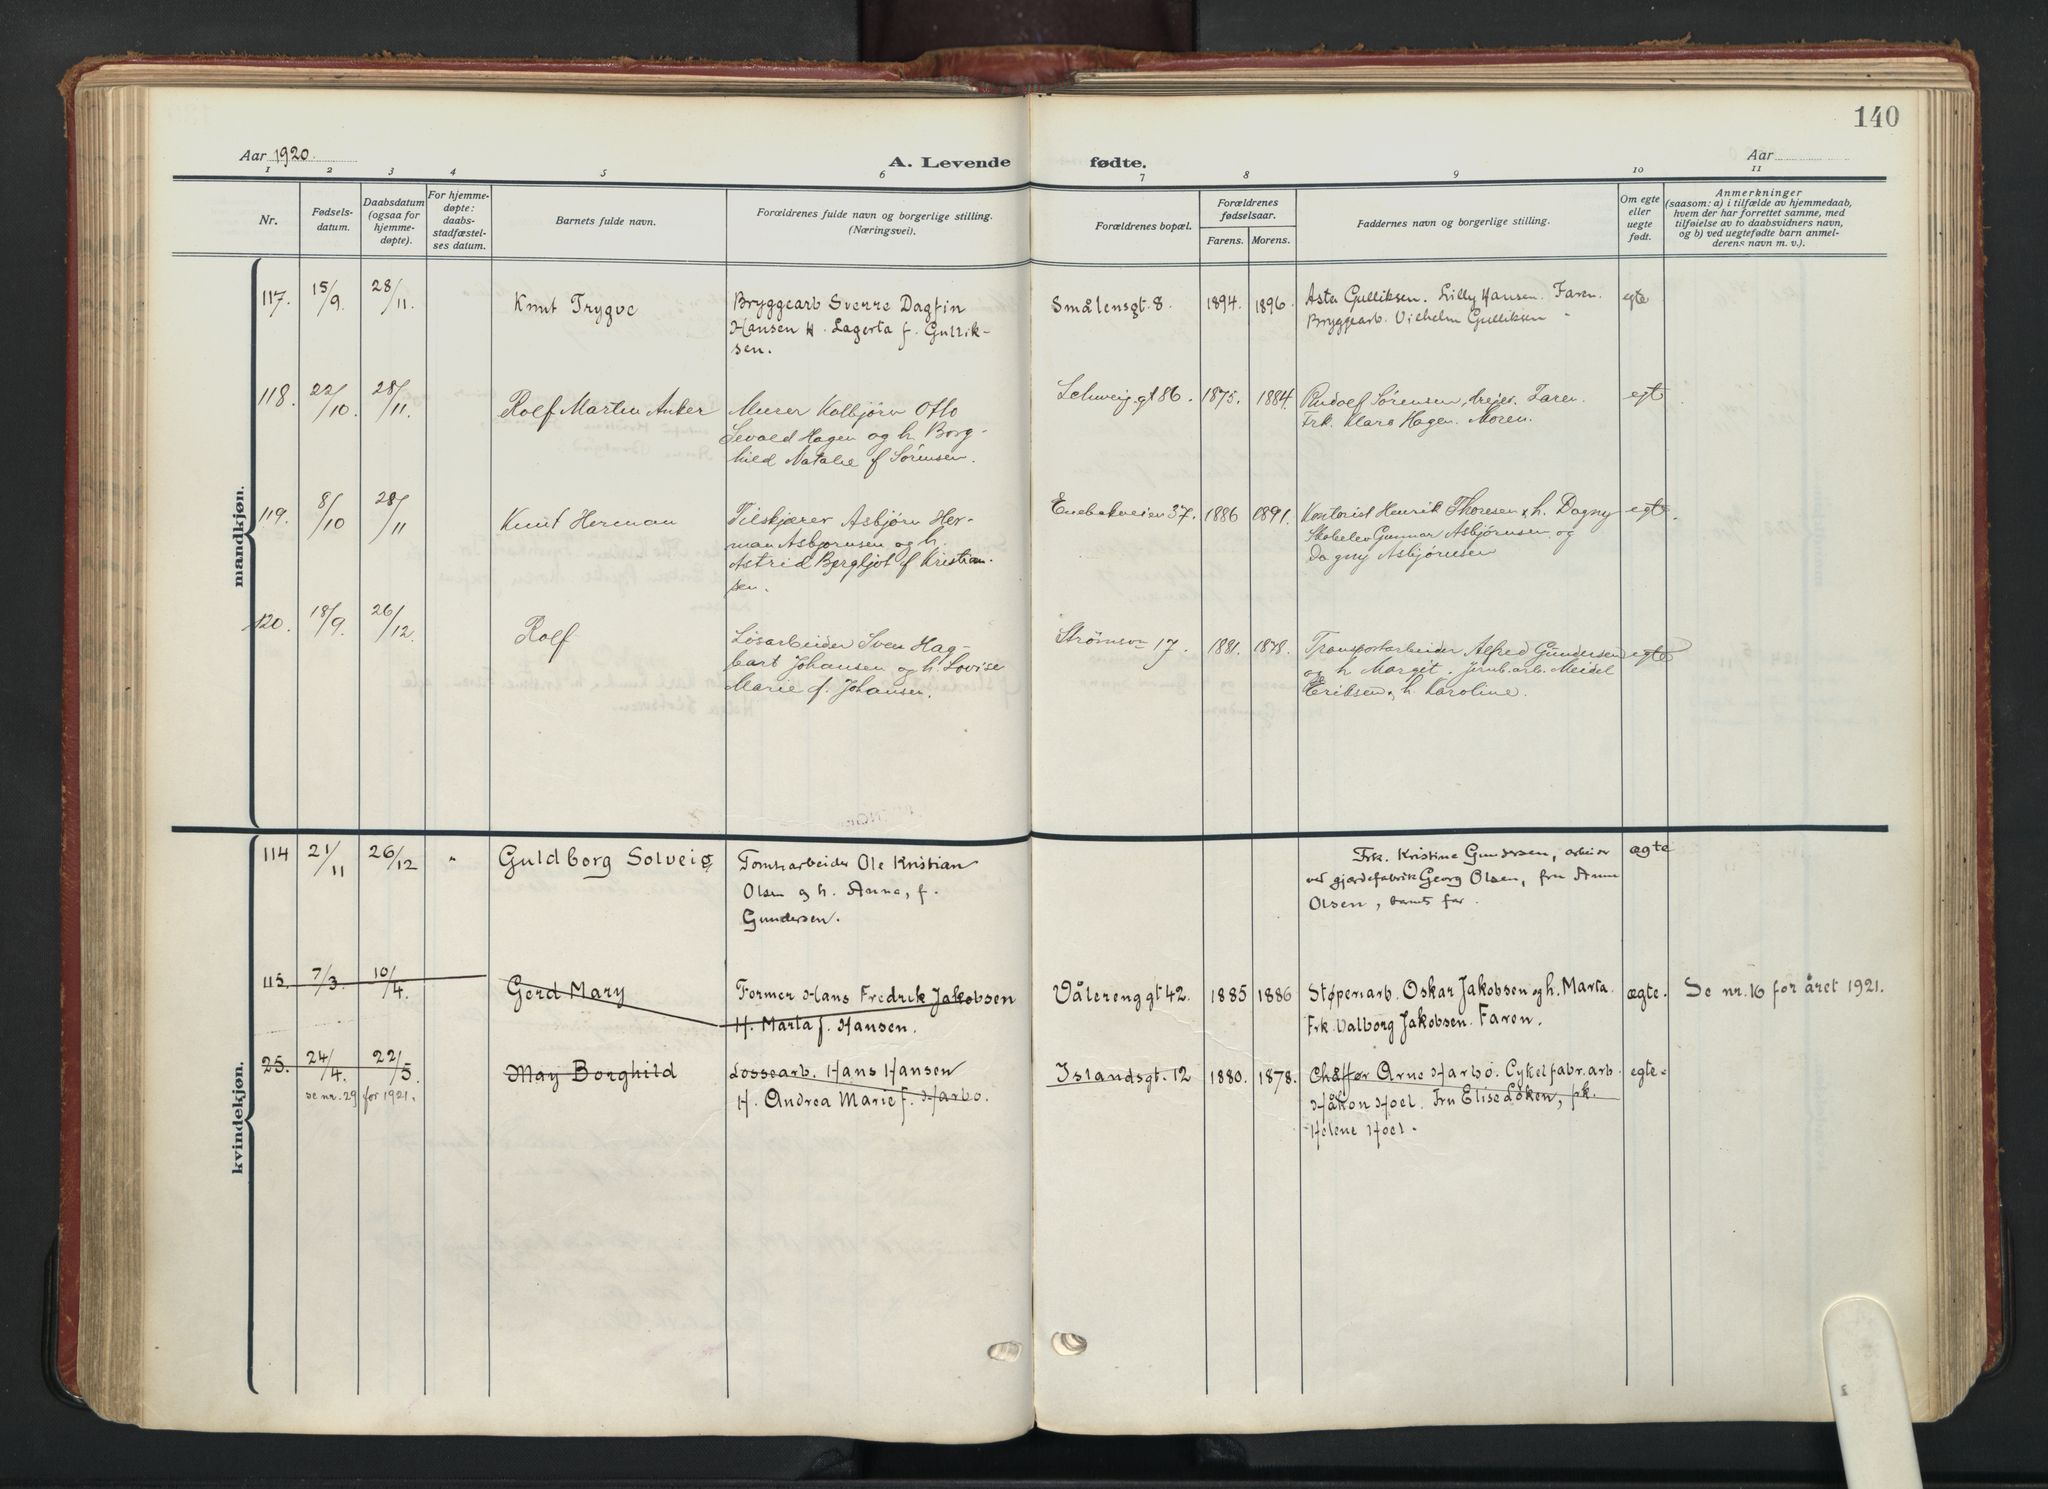 140
Aar 1920.
A. Levende fødte.
Aar
1 2 3 4 5 6 7 8 9 10 11
Nr.
Fødsels-
datum.
Daabsdatum
(ogsaa for
hjemme-
døpte).
For hjemme-
døpte:
daabs-
stadfæstel-
ses datum.
Barnets fulde navn.
Forældrenes fulde navn og borgerlige stilling.
(Næringsvei).
Forældrenes bopæl.
Forældrenes
fødselsaar.
Farens. Morens.
Faddernes navn og borgerlige stilling.
Om egte
eller
uegte
født.
Anmerkninger
(saasom: a) i tilfælde av hjemmedaab,
hvem der har forrettet samme, med
tilføielse av to daabsvidners navn,
og b) ved uegtefødte barn anmel-
derens navn m. v.).
mandkjøn.
117. 15/9. 28/11. Knut Trygve
Bryggearb Sverre Dagfin
Hansen H. Lagerta f. Gullik-
sen.
Smålensgt. 8. 1894. 1896.
Asta Gulliksen. Lilly Hansen. Faren.
Bryggearb. Vilhelm Gulliksen
egte
118. 22/10. 28/11. Rolf Martin Anker
Murer Kolbjørn Otto
Sevald Hagen og h. Borg-
hild Natalie f Sørensen.
Schweig.gt 86. 1875. 1884.
Rudolf Sørensen, drejer. Faren.
Frk. Klara Hagen. Moren.
egt
119. 8/10 28/11 Knut Herman
Tilskjærer Asbjørn Her-
man Asbjørnsen og h.
Astrid Bergljot f Kristian-
sen.
Enebakveien 37. 1886 1891.
Kontorist Henrik Thoresen & h. Dagny
Skobelev Gunnar Asbjørnsen og
Dagny Asbjørnsen
egte.
120. 18/9. 26/12. Rolf
Løsarbeider Sven Hag-
bart Johansen og h. Lovise
Marie f. Johansen.
Strømsv 17. 1881. 1878.
Transportarbeider Alfred Gundersen
og h. Margit. Jernb.arb. Meidel
Eriksen, h. Karoline.
egte
kvindekjøn.
114 21/11 26/12 " Guldborg Solveig
Tomtarbeider Ole Kristian
Olsen og h. Anna, f.
Gundersen.
Frk. Kristine Gundersen, arbeier
ved gjærdefabrik Georg Olsen, fru Anna
Olsen, barnets far.
ægte
115. 7/3. 10/4. Gerd Mary
Former Hans Fredrik Jakobsen
H. Marta f. Hansen.
Vålerenggt 42. 1885 1886
Støperiarb. Oskar Jakobsen og h. Marta.
Frk. Valborg Jakobsen. Faren.
ægte. Se nr. 16 for året 1921.
25. 24/4. 22/5. May Borghild
se nr. 29 for 1921.
Lossearb. Hans Hansen
H. Andrea Marie f. Harbo.
Islandsgt. 12 1880. 1878.
Chåffør Arne Harbo. Cykelfabr.arb.
Håkon Hoel. Fru Elise Løken, frk.
Helene Hoel.
egte.